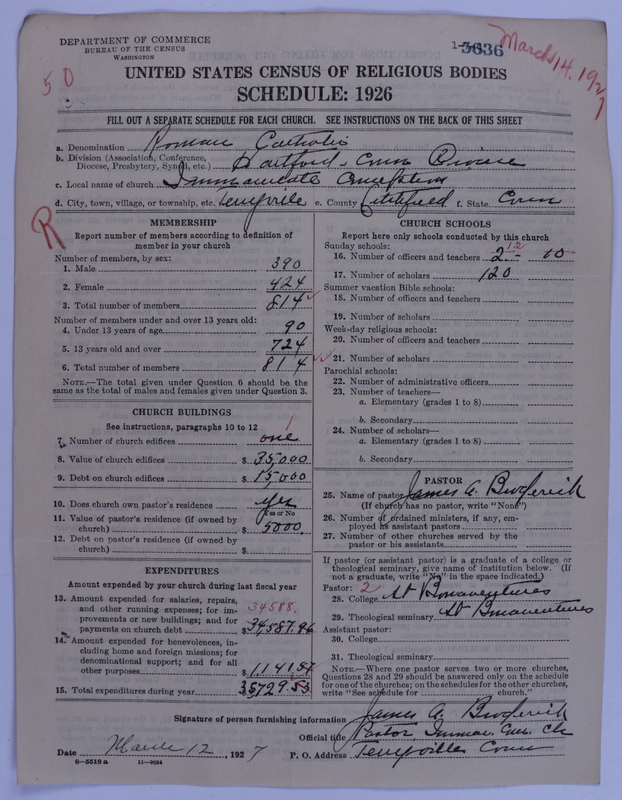 DEPARTMENT OF COMMERCE
BUREAU OF THE CENSUS
WASHINGTON
1-5636
March 14, 1927
50
UNITED STATES CENSUS OF RELIGIOUS BODIES
SCHEDULE: 1926
FILL OUT A SEPARATE SCHEDULE FOR EACH CHURCH. SEE INSTRUCTIONS ON THE BACK OF THIS SHEET
a. Denomination Roman Catholic
b. Division (Association, Conference,
Diocese, Presbytery, Synod, etc.) Hartford - Conn Diocese
c. Local name of church Immaculate Conception
d. City, town, village, or township, etc. Terryville e. County Litchfield f. State Conn
R
MEMBERSHIP
Report number of members according to definition of
member in your church
Number of members, by sex:
1. Male 390
2. Female 424
3. Total number of members 814
Number of members under and over 13 years old:
4. Under 13 years of age 90
5. 13 years old and over 724
6. Total number of members 814
NOTE.—The total given under Question 6 should be
the same as the total of males and females given under Question 3.
CHURCH BUILDINGS
See instructions, paragraphs 10 to 12
1
7. Number of church edifices one
8. Value of church edifices $ 35,000
9. Debt on church edifices $ 15,000
10. Does church own pastor's residence yes
Yes or No
11. Value of pastor's residence (if owned by
church) $ 5000.
12. Debt on pastor's residence (if owned by
church) $
EXPENDITURES
Amount expended by your church during last fiscal year
13. Amount expended for salaries, repairs,
and other running expenses; for im-
provements or new buildings; and for
payments on church debt $ 34,587.96
34588.
14. Amount expended for benevolences, in-
cluding home and foreign missions; for
denominational support; and for all
other purposes $ 1,141.57
15. Total expenditures during year 35729.53
CHURCH SCHOOLS
Report here only schools conducted by this church
Sunday schools:
12
16. Number of officers and teachers 2 - 10
17. Number of scholars 120
Summer vacation Bible schools:
18. Number of officers and teachers
19. Number of scholars
Week-day religious schools:
20. Number of officers and teachers
21. Number of scholars
Parochial schools:
22. Number of administrative officers
23. Number of teachers—
a. Elementary (grades 1 to 8)
b. Secondary
24. Number of scholars—
a. Elementary (grades 1 to 8)
b. Secondary
PASTOR
25. Name of pastor James A. Broderick
(If church has no pastor, write "None")
26. Number of ordained ministers, if any, em-
ployed as assistant pastors
27. Number of other churches served by the
pastor or his assistants
If pastor (or assistant pastor) is a graduate of a college or
theological seminary, give name of institution below. (If
not a graduate, write "No" in the space indicated.)
Pastor: 2
28. College St Bonaventures
29. Theological seminary St Bonaventures
Assistant pastor:
30. College
31. Theological seminary
NOTE.—Where one pastor serves two or more churches,
Questions 28 and 29 should be answered only on the schedule
for one of the churches; on the schedules for the other churches,
write "See schedule for church."
Signature of person furnishing information James A. Broderick
Official title Pastor, Immac. Con. Ch
Date March 12, 1927 P. O. Address Terryville Conn
8-5518a 11-9054